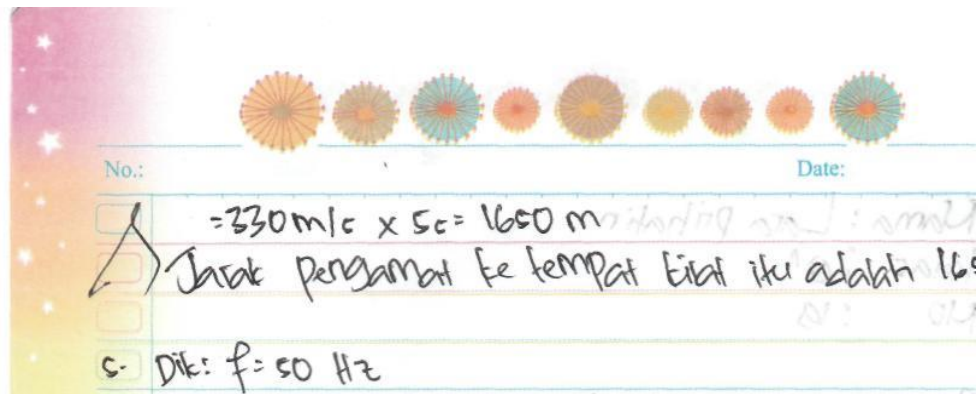 No.:
Date:
=330 m/s x 5s = 1650 m
Jarak pengamat ke tempat kilat itu adalah 165
5. Dik: f = 50 Hz